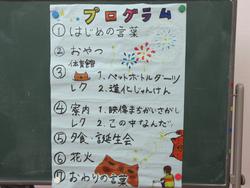 プログラム
① はじめの言葉
② おやつ
体育館
③ 1.ペットボトルダーツ
レク 2.進化じゃんけん
④ 案内 1.映像まちがいさがし
レク 2.この中なんだ
⑤ 夕食・誕生会
⑥ 花火
⑦ おわりの言葉